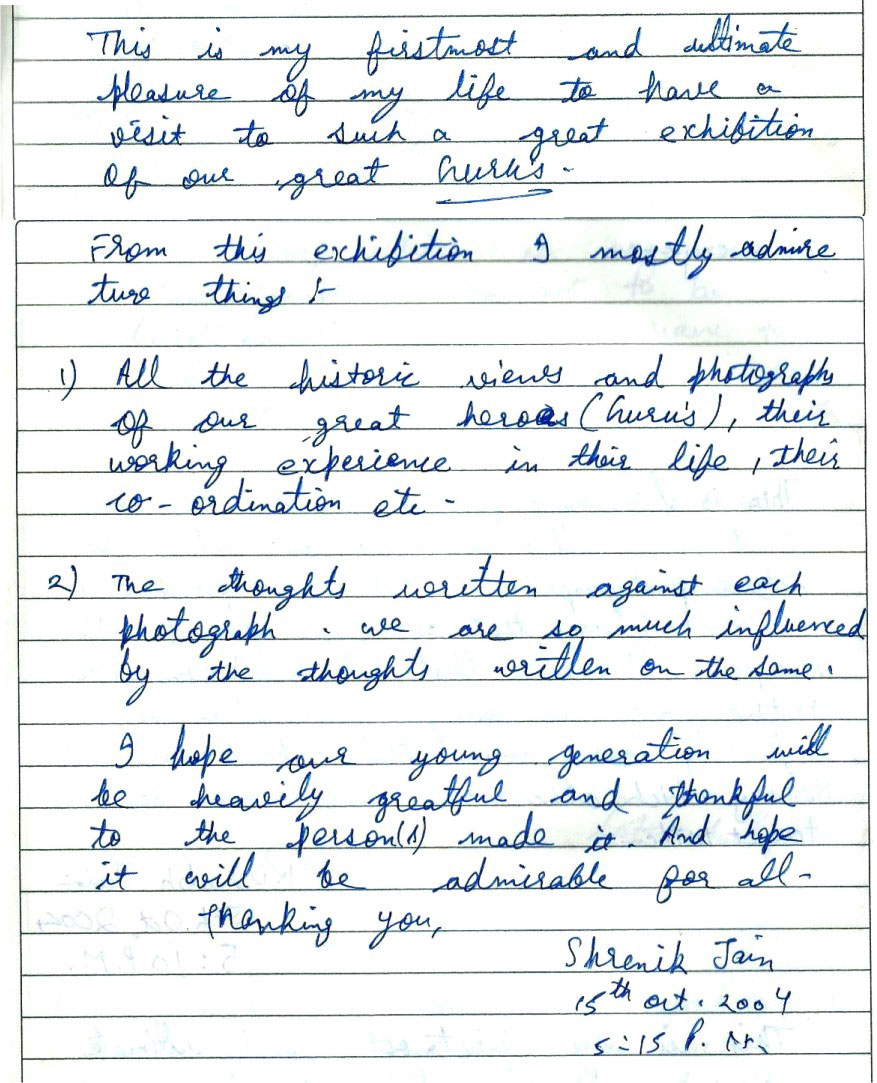 This is my firstmost and ultimate
pleasure of my life to have a
visit to such a great exhibition
of our great Guru's.
From this exhibition I mostly admire
two things :-
1) All the historic views and photographs
of our great heroes (Guru's), their
working experience in their life, their
co-ordination etc -
2) The thoughts written against each
photograph. we are so much influenced
by the thoughts written on the same.
I hope our young generation will
be heavily greatful and thankful
to the person(s) made it. And hope
it will be admirable for all-
Thanking you,
Shrenik Jain
15th oct. 2004
5:15 P.M.